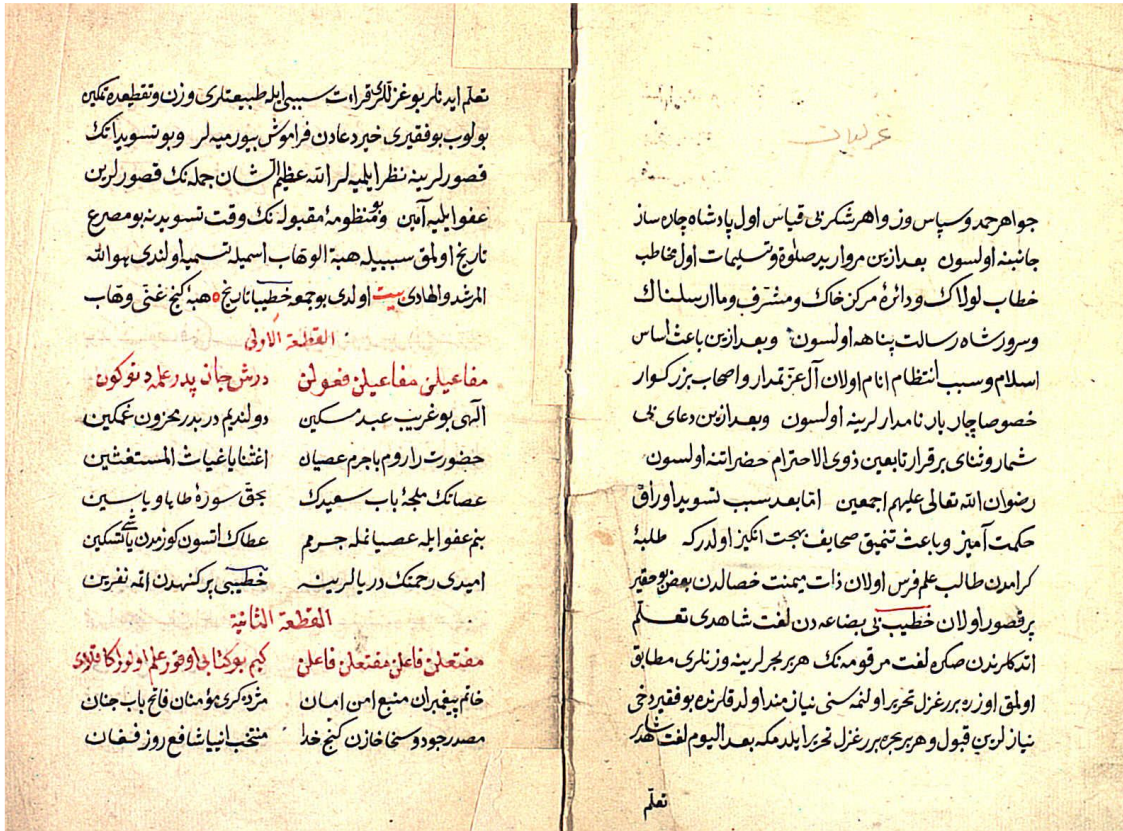 غزلیات
جواهر حمد و سپاس وزواهر شکر بی قیاس اول پادشاه چاره ساز
جانبنه اولسون بعد ازین مروارید صلوة و تسلیمات اول مخاطب
خطاب لولاک و دائرۀ مرکز خاک و مشرف وما ارسلناک
و سرور شاه رسالت پناهه اولسون و بعد ازین باعث اساس
اسلام و سبب انتظام انام اولان آل عزتمدار و اصحاب بزرکوار
خصوصا چار یار نامدارلرینه اولسون و بعد ازین دعای بی
شمار و ثنای برقرار تابعین ذوی الاحترام حضراتنه اولسون
رضوان الله تعالی علیهم اجمعین اما بعد سبب تسوید اوراق
حکمت آمیز و باعث تنمیق صحایف بهجت انکیز اولدرکه طلبۀ
کرامدن طالب علم فرس اولان ذات میمنت خصالدن بعض بو حقیر
پر قصور اولان خطیب بی بضاعه دن لغت شاهدی تعلم
اتدکلرندن صکره لغت مرقومه نک هر بر بحرلرینه وزنلری مطابق
اولمق اوزره برر غزل تحریر اولنمه سنی نیازمند اولدقلرنده بو فقیر دخی
نیازلرین قبول و هر بر بحره برر غزل تحریر ایلدمکه بعد الیوم لغت شاهدی
تعلم
تعلم ایدنلر بو غزللری قراءت سببی ایله طبیعتلری وزن و تقطیعده تمکین
بولوب بو فقیری خیر دعادن فراموش بیورمیه لر و بو تسویداتک
قصورلرینه نظر ایلمیه لر الله عظیم الشان جمله نک قصورلرین
عفو ایلیه آمین و بو منظومۀ مقبوله نک وقت تسویدینه بو مصرع
تاریخ اولمق سببیله هبة الوهاب اسمیله تسمیه اولندی هو الله
المرشد والهادی بیت اولدی بو جمعه خطیبا تاریخ ه هبۀ کنج غنی وهاب
القطعة الاولی
مفاعیلن مفاعیلن فعولن درش جان پدر علمه دنوکون
آلهی بو غریب عبد مسکین دولندیم دربدر محزون غمکین
حضورت راروم باجرم عصیان اغثنا یا غیاث المستغثین
عصاتک ملجۀ باب سعیدک بحق سورۀ طاها و یاسین
بنم عفو ایله عصیانمله جرمم عطاک اتسون کوزمدن یاشی تسکین
امیدی رحمتک دریالرینه خطیبی پر کنهدن اتمه نفرین
القطعة الثانیة
مفتعلن فاعلن مفتعلن فاعلن کیم بو کتابی اوقور علم اولور اکا قلای
خاتم پیغمبران منبع امن امان مژده کری مؤمنان فاتح باب جنان
مصدر جود و سخا خازن کنج خدا منتخب انبیا شافع روز فغان